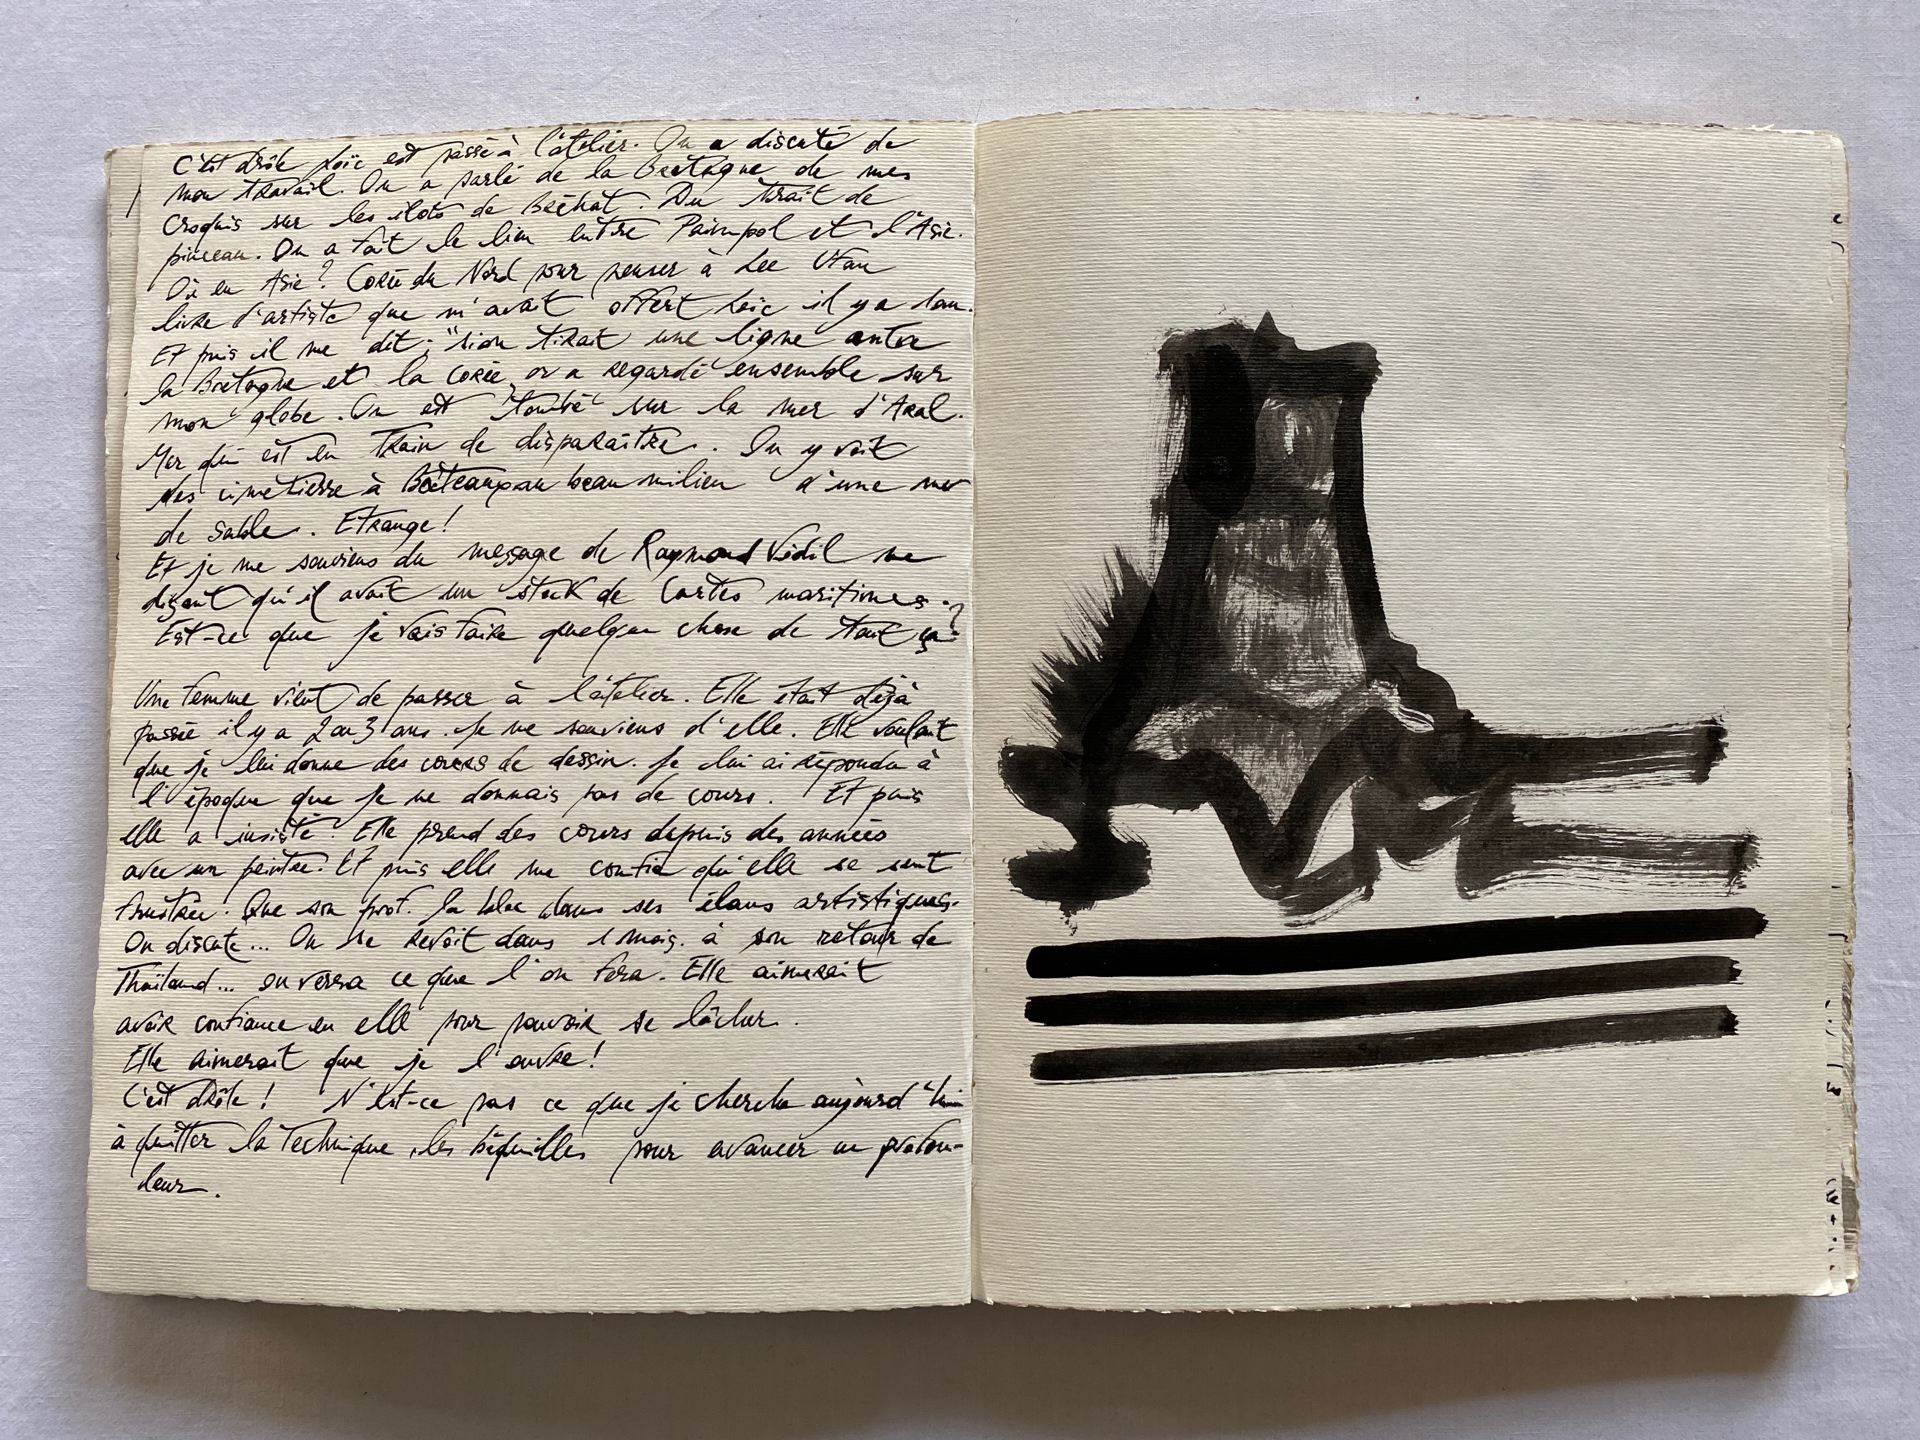 C'est drôle Loïc est passé à l'atelier. On a discuté de
mon travail. On a parlé de la Bretagne de mes
croquis sur les ilots de Bréhat. Du trait de
pinceau. On a fait le lien entre Paimpol et l'Asie.
Où en Asie? Corée du Nord pour penser à Lee Ufan
livre d'artiste que m'avait offert Loïc il y a 1 an.
Et puis il me dit: "si on tirait une ligne entre
la Bretagne et la Corée, on a regardé ensemble sur
mon globe. On est "tombé" sur la mer d'Aral.
Mer qui est en train de disparaître. On y voit
des cimetierre à Bateau au beau milieu d'une mer
de sable. Etrange!
Et je me souviens du message de Raymond me
disant qu'il avait un stock de cartes maritimes.
Est-ce que je vais faire quelque chose de tout ça?
Une femme vient de passer à l'atelier. Elle était déjà
passée il y a 2 ou 3 ans. Je me souviens d'elle. Elle voulait
que je lui donne des cours de dessin. Je lui ai répondu à
l'époque que je ne donnais pas de cours. Et puis
elle a insisté. Elle prend des cours depuis des années
avec un peintre. Et puis elle me confie qu'elle se sent
frustrée. Que son prof. la bloc dans ses élans artistiques.
On discute... On se revoit dans 1 mois. à son retour de
Thaïland... on verra ce que l'on fera. Elle aimerait
avoir confiance en elle pour pouvoir se lâcher.
Elle aimerait que je l'ouvre!
C'est drôle! N'est-ce pas ce que je cherche aujourd'hui
à quitter la technique, les béquilles pour avancer en profon-
deur.